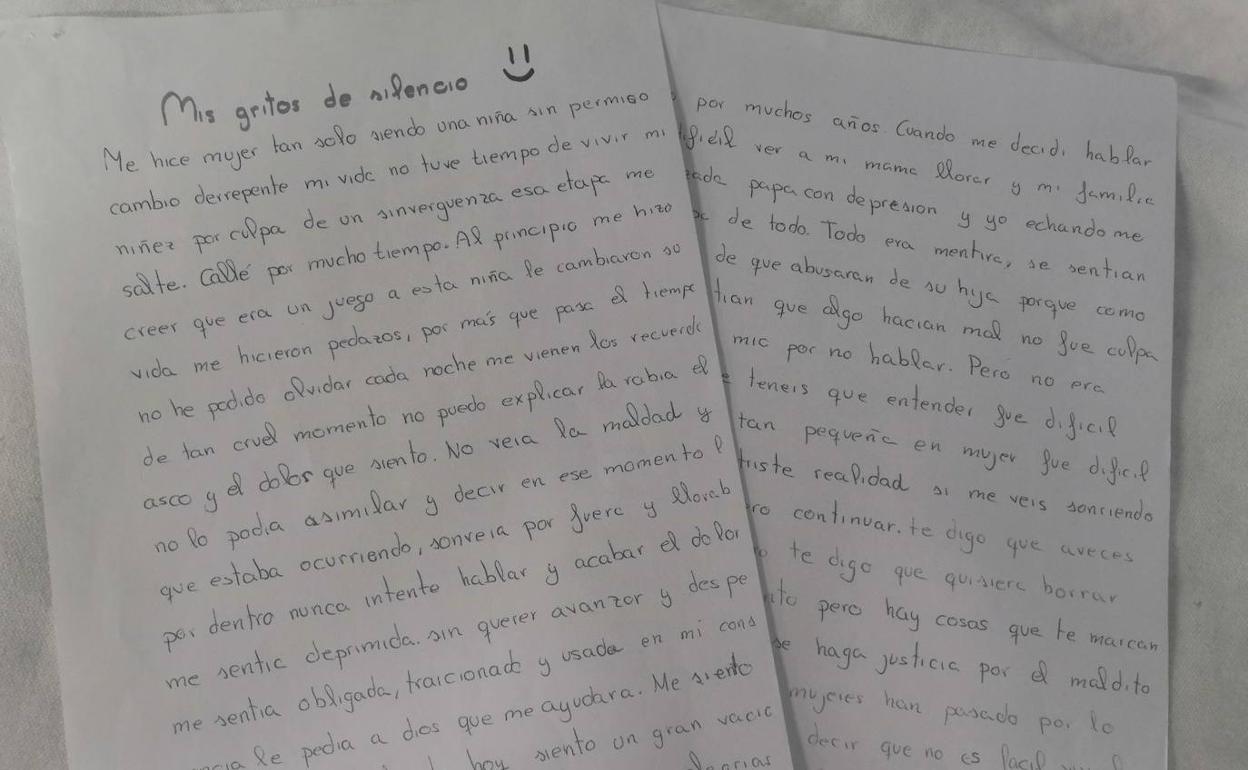 Mis gritos de silencio
Me hice mujer tan solo siendo una niña sin permiso
cambio derrepente mi vida no tuve tiempo de vivir mi
niñez por culpa de un sinverguenza esa etapa me
salte. Callé por mucho tiempo. Al principio me hizo
creer que era un juego a esta niña le cambiaron su
vida me hicieron pedazos, por más que pasa el tiempo
no he podido olvidar cada noche me vienen los recuerdo
de tan cruel momento no puedo explicar la rabia el
asco y el dolor que siento. No veia la maldad y
no lo podia asimilar y decir en ese momento l
que estaba ocurriendo, sonreia por fuera y llorab
por dentro nunca intente hablar y acabar el dolor
me sentia deprimida. sin querer avanzar y des pe
me sentia obligada, traicionada y usada en mi cons
ncia le pedia a dios que me ayudara. Me siento
hoy siento un gran vacio
por muchos años. Cuando me decidi hablar
ificil ver a mi mama llorar y mi familia
zada papa con depresion y yo echando me
de todo. Todo era mentira, se sentian
de que abusaran de su hija porque como
tian que algo hacian mal no fue culpa
mia por no hablar. Pero no era
teneis que entender fue dificil
tan pequeña en mujer fue dificil
triste realidad si me veis sonriendo
ro continuar. te digo que aveces
te digo que quisiera borrar
nto pero hay cosas que te marcan
se haga justicia por el maldito
mujeres han pasado por lo
decir que no es facil